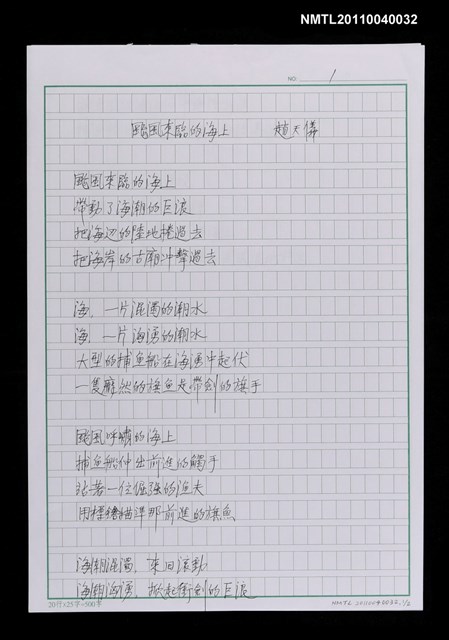 NMTL20110040032
NO. 1
颱風來臨的海上 趙天儀
颱風來臨的海上
帶動了海潮的巨浪
把海边的陸地捲過去
把海岸的古廟冲擊過去
海,一片混濁的潮水
海,一片洶湧的潮水
大型的捕魚船在海湧中起伏
一隻雕然的旗魚是帶劍的旗手
颱風呼嘯的海上
捕魚船伸出前進的觸手
站著一位倔强的渔夫
用標鎗描準那前進的旗魚
海潮混濁,來回滾動
海潮洶湧,掀起衝劍的巨浪
20行×25字=500字
NMTL 20110040032, 1/2